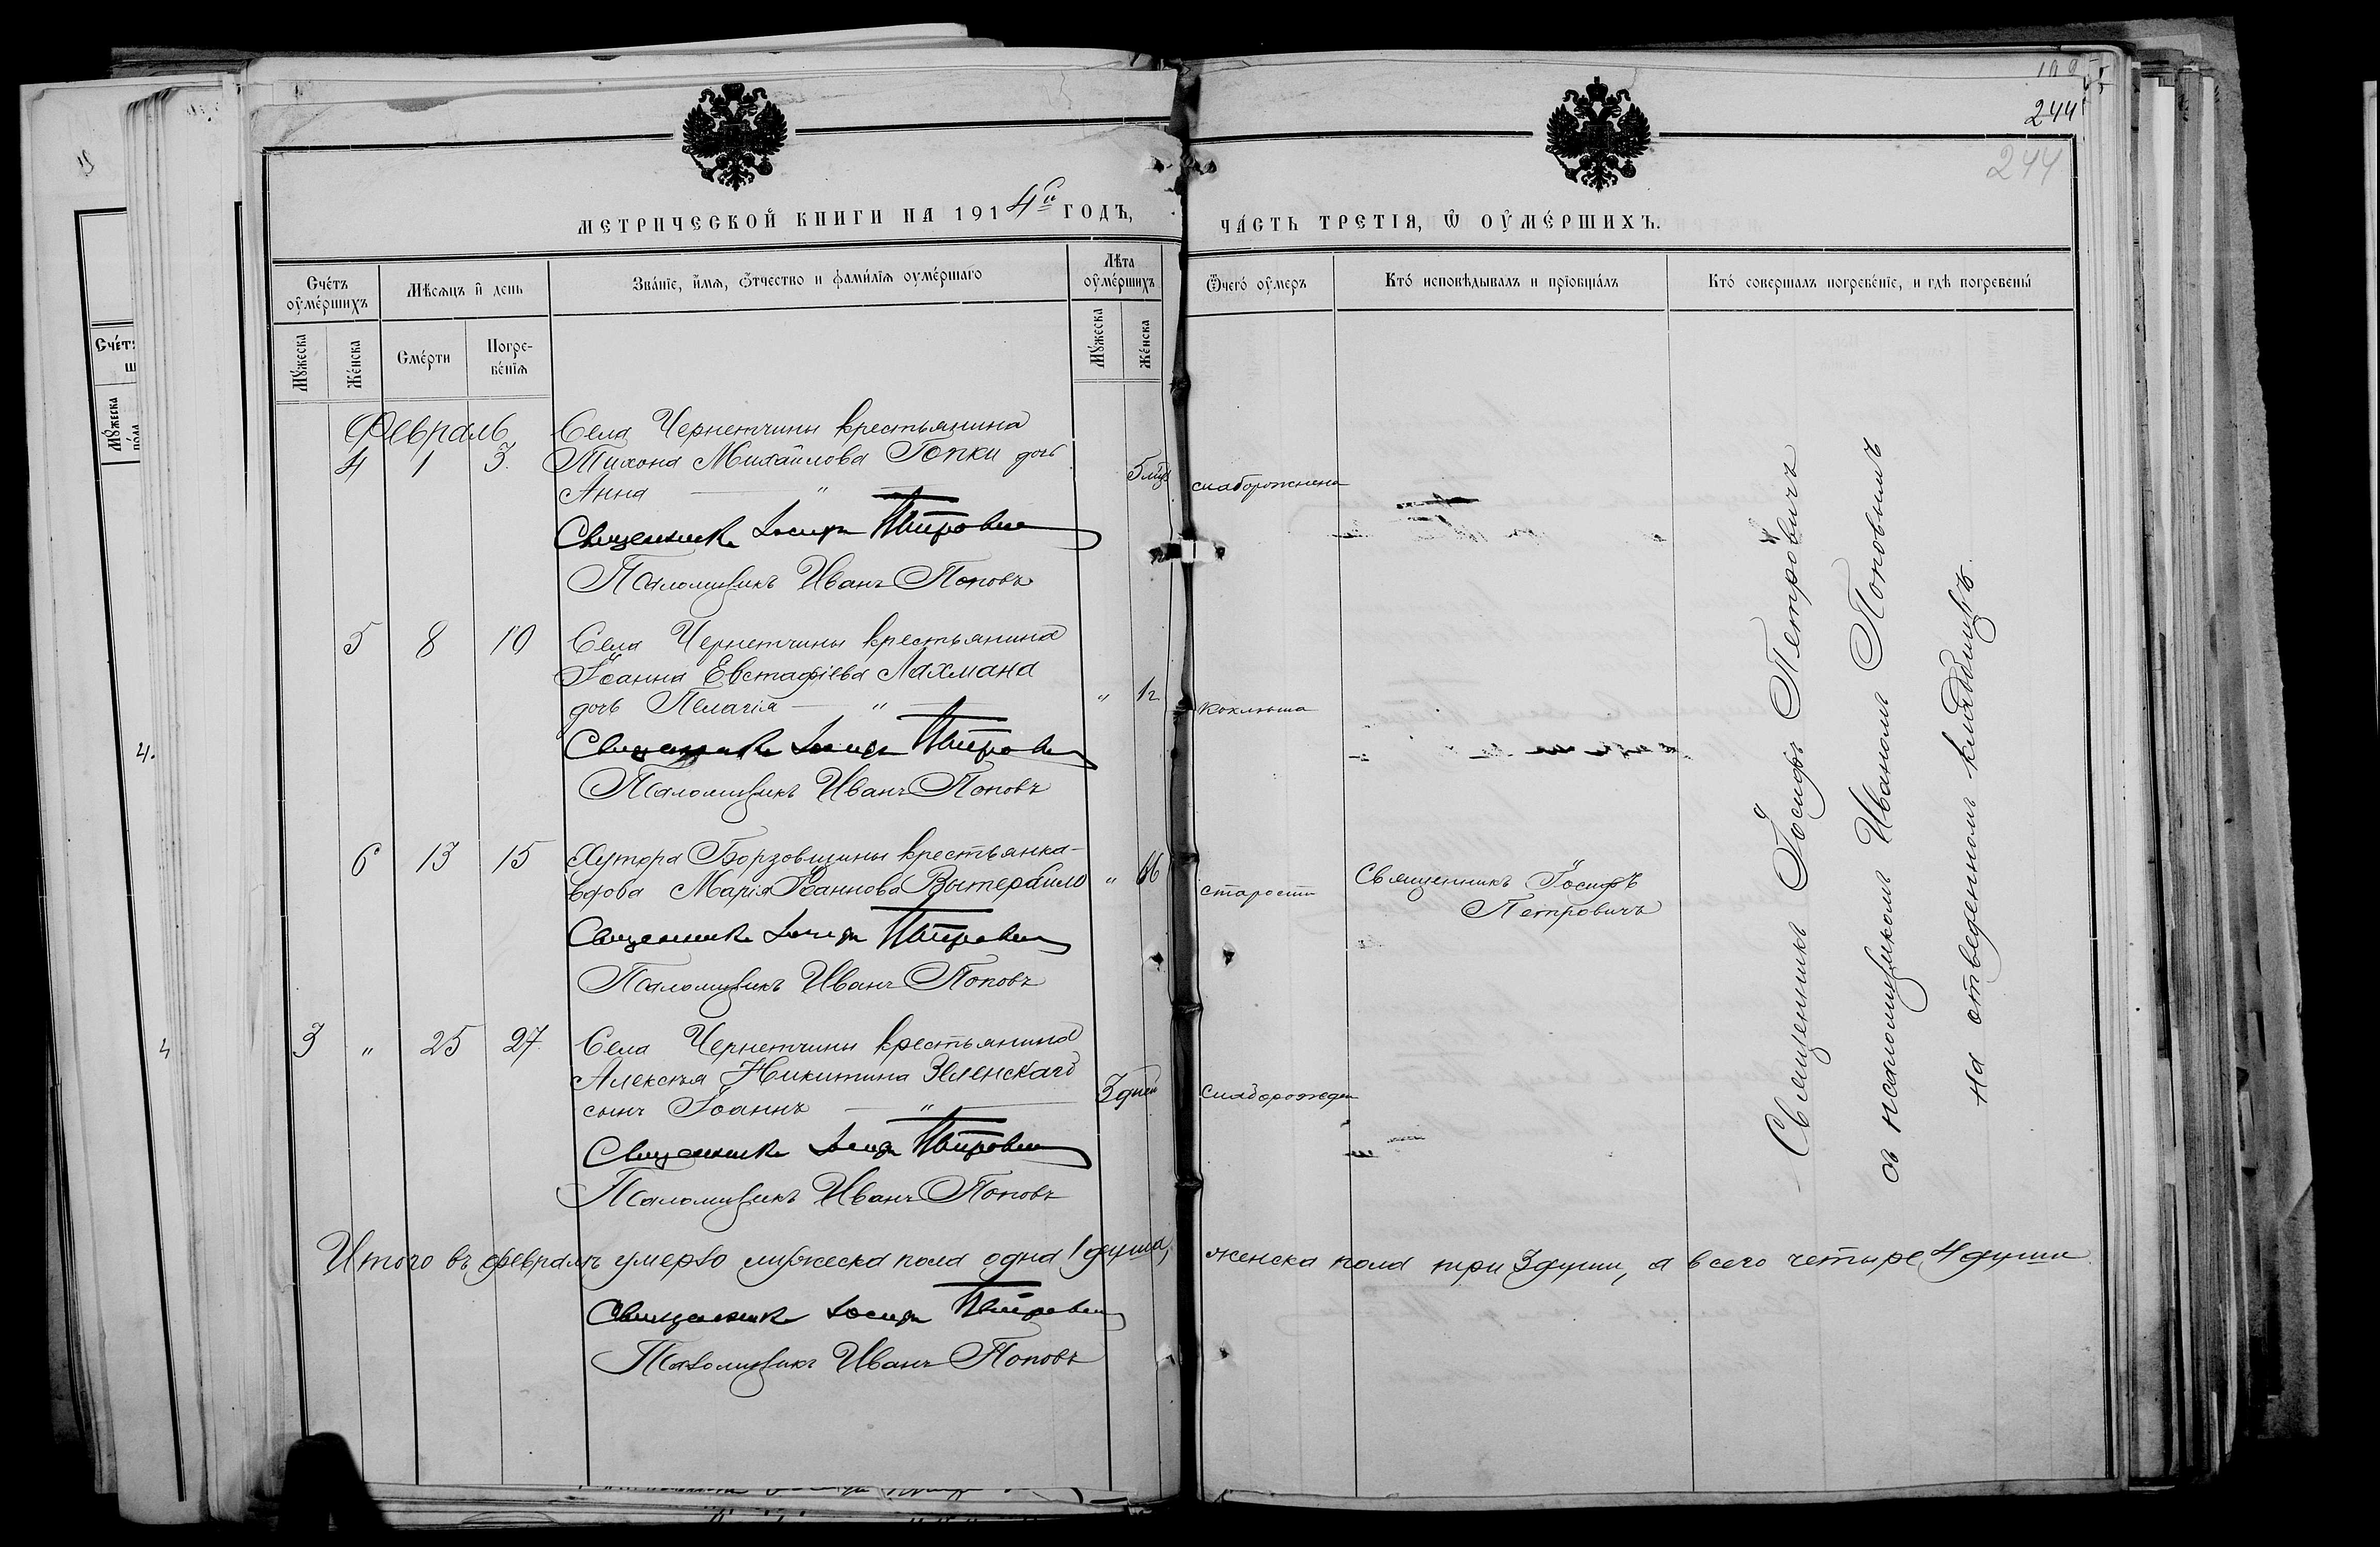 244
244
МЕТРИЧЕСКОЙ КНИГИ НА 1914й ГОДЪ,
ЧАСТЬ ТРЕТІѦ, Ѿ ОУМЕРШИХЪ.
Счетъ оумершихъ
Мѣсѧцъ и день
Званіе, имѧ, Отчество и фамиліѧ оумершаго
Лѣта оумершихъ
Ѿчего оумеръ
Кто исповѣдывалъ и пріобщалъ
Кто совершалъ погребеніе, и гдѣ погребены
Мꙋжеска
Женска
Смерти
Погребеніѧ
Мꙋжеска
Женска
Февраль
Села Чернетчины крестьянина
4 1 3. Тихона Михайлова Гопки дочь
Анна — " — 5 мцъ слаборожнена
Священникъ Іосифъ Петровичъ
Псаломщикъ Иванъ Поповъ
5 8 10 Села Чернетчины крестьянина
Іоанна Евстафіева Лахмана
дочь Пелагія — " — " 1 г. коклюша
Священникъ Іосифъ Петровичъ
Псаломщикъ Иванъ Поповъ
6 13 15 Хутора Борзовщины крестьянка-
вдова Марія Іоаннова " 66 старости
Священникъ Іосифъ
Петровичъ
Священникъ Іосифъ Петровичъ
Псаломщикъ Иванъ Поповъ
3 " 25 27. Села Чернетчины крестьянина
Алексѣя Никитина Зеленскаго
сынъ Іоаннъ — " — 3 дней слаборожден
Священникъ Іосифъ Петровичъ
Псаломщикъ Иванъ Поповъ
Священникъ Іосифъ Петровичъ
съ псаломщикомъ Иваномъ Поповымъ
на отведенномъ кладбищѣ.
Итого въ февралѣ умерло мужеска пола одна 1 душа, женска пола три 3 души, а всего четыре 4 души
Священникъ Іосифъ Петровичъ
Псаломщикъ Иванъ Поповъ